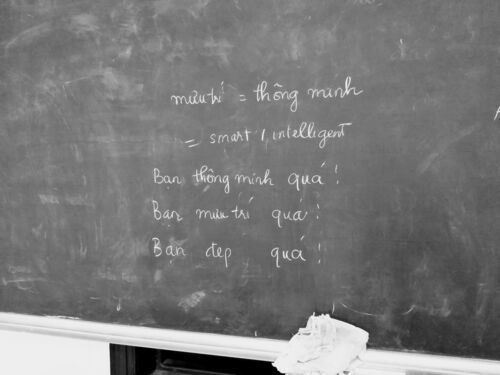 mưu trí = thông minh
= smart / intelligent
Bạn thông minh quá!
Bạn mưu trí quá!
Bạn đẹp quá!